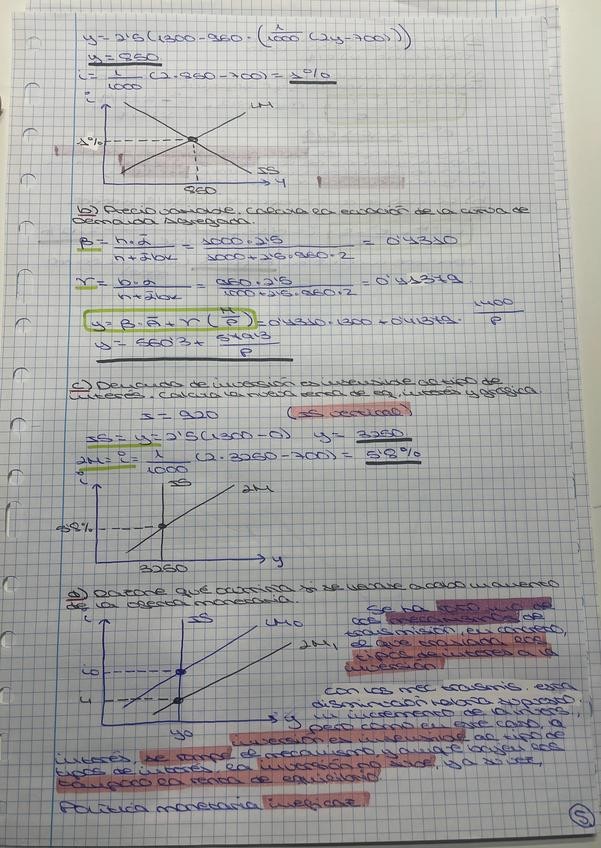 y = 2'5 (1300 - 960 · (1/1000 (2y - 700)))
y = 860
i = 1/1000 (2 · 860 - 700) = 1%
i
LM
1%
IS
860
y
b) Precio variable. Calcula la ecuación de la curva de
demanda agregada.
β = h · ᾱ / h + ᾱbk = 1000 · 2'5 / 1000 + 2'5 · 960 · 2 = 0'4310
γ = b · α / h + ᾱbk = 960 · 2'5 / 1000 + 2'5 · 960 · 2 = 0'41379
y = β · Ā + γ (M/P) = 0'4310 · 1300 + 0'41379 · 1400/P
y = 560'3 + 579'3/P
c) Demanda de inversión es insensible al tipo de
interés. Calcula la nueva renta de eq, interés y gráfica.
I = 920 (IS vertical)
IS = y = 2'5 (1300 - 0) y = 3250
LM = i = 1/1000 (2 · 3250 - 700) = 5'8%
i
IS
LM
5'8%
3250
y
d) Razone qué ocurriría si se llevase a cabo un aumento
de la oferta monetaria.
i
IS
LM0
LM1
i0
y0
y
Se ha roto uno de
los mecanismos de
transmisión, en concreto,
el que traslada los
tipos de interés a la
inversión.
Con los mec. trasmis. esta
disminución
un incremento de la inversión,
pero como en este caso, la
inversión es insensible al tipo de
interés, se rompe el mecanismo y aunque bajen los
tipos de interés, la inversión no sube, y a su vez,
tampoco la renta de equilibrio.
Política monetaria ineficaz.
5